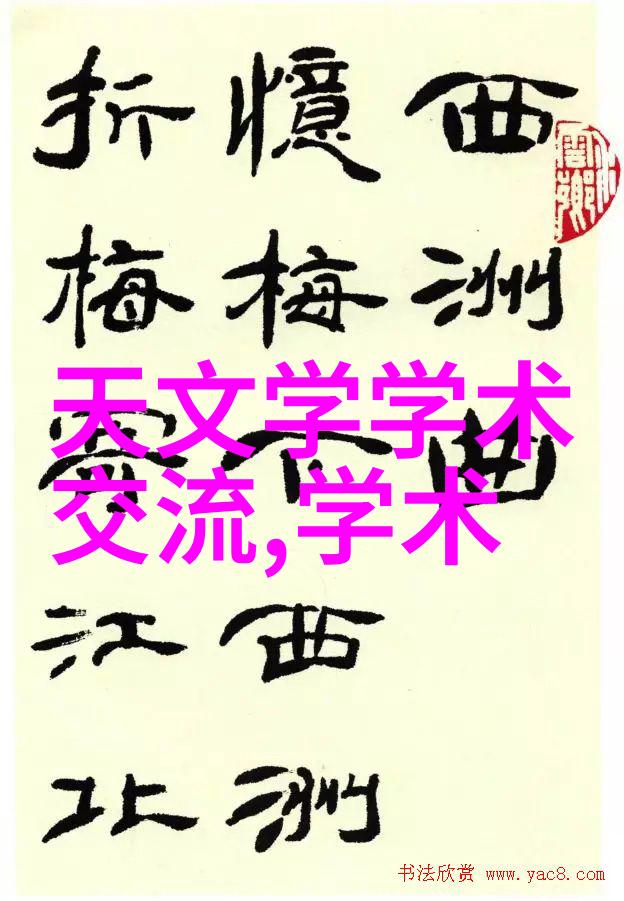 西洲曲
憶梅下西洲
折梅寄江北
天文学学术
交流,学术
书法欣赏 www.yac8.com